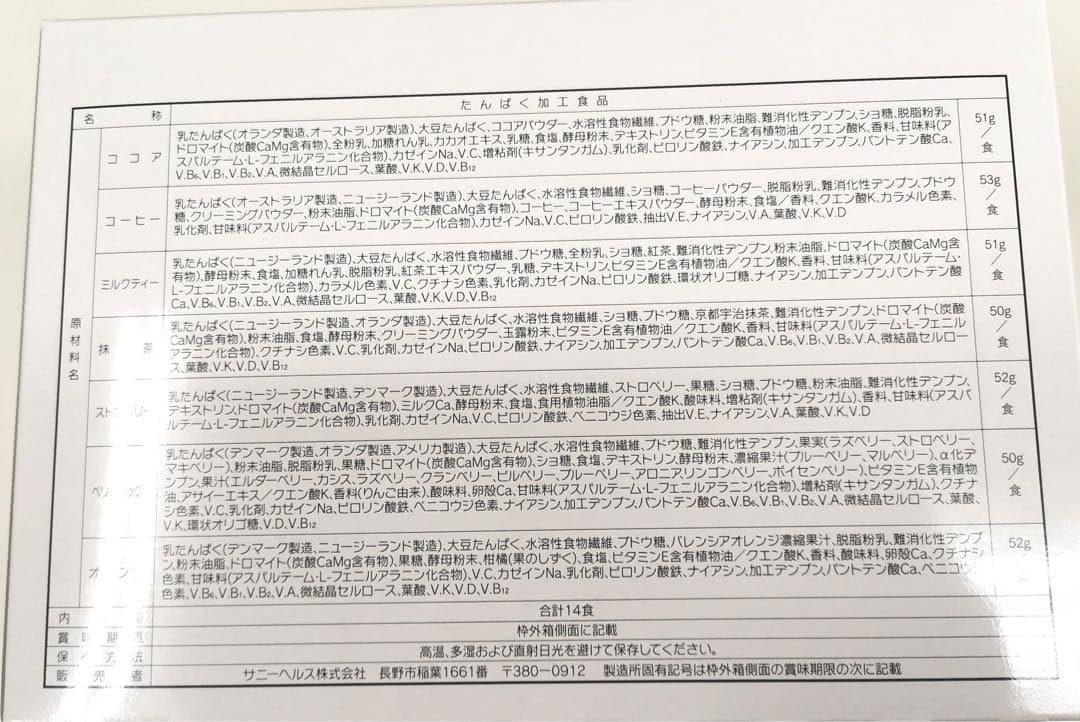 名 称 たんぱく加工食品
原材料名
ココア
乳たんぱく(オランダ製造、オーストラリア製造)、大豆たんぱく、ココアパウダー、水溶性食物繊維、ブドウ糖、粉末油脂、難消化性デンプン、ショ糖、脱脂粉乳、
ドロマイト(炭酸CaMg含有物)、全粉乳、加糖れん乳、カカオエキス、乳糖、食塩、酵母粉末、デキストリン、ビタミンE含有植物油／クエン酸K、香料、甘味料(ア
スパルテーム・L-フェニルアラニン化合物)、カゼインNa、V.C、増粘剤(キサンタンガム)、乳化剤、ピロリン酸鉄、ナイアシン、加工デンプン、パントテン酸Ca、
V.B6、V.B1、V.B2、V.A、微結晶セルロース、葉酸、V.K、V.D、V.B12
51g／食
コーヒー
乳たんぱく(オーストラリア製造、ニュージーランド製造)、大豆たんぱく、水溶性食物繊維、ショ糖、コーヒーパウダー、脱脂粉乳、難消化性デンプン、ブドウ
糖、クリーミングパウダー、粉末油脂、ドロマイト(炭酸CaMg含有物)、コーヒー、コーヒーエキスパウダー、酵母粉末、食塩／香料、クエン酸K、カラメル色素、
乳化剤、甘味料(アスパルテーム・L-フェニルアラニン化合物)、カゼインNa、V.C、ピロリン酸鉄、抽出V.E、ナイアシン、V.A、葉酸、V.K、V.D
53g／食
ミルクティー
乳たんぱく(ニュージーランド製造)、大豆たんぱく、水溶性食物繊維、ブドウ糖、全粉乳、ショ糖、紅茶、難消化性デンプン、粉末油脂、ドロマイト(炭酸CaMg含
有物)、酵母粉末、食塩、加糖れん乳、脱脂粉乳、紅茶エキスパウダー、乳糖、デキストリン、ビタミンE含有植物油／クエン酸K、香料、甘味料(アスパルテーム・
L-フェニルアラニン化合物)、カラメル色素、V.C、クチナシ色素、乳化剤、カゼインNa、ピロリン酸鉄、環状オリゴ糖、ナイアシン、加工デンプン、パントテン酸
Ca、V.B6、V.B1、V.B2、V.A、微結晶セルロース、葉酸、V.K、V.D、V.B12
51g／食
抹茶
乳たんぱく(ニュージーランド製造、オランダ製造)、大豆たんぱく、水溶性食物繊維、ショ糖、ブドウ糖、京都宇治抹茶、難消化性デンプン、ドロマイト(炭酸
CaMg含有物)、粉末油脂、食塩、酵母粉末、クリーミングパウダー、玉露粉末、ビタミンE含有植物油／クエン酸K、香料、甘味料(アスパルテーム・L-フェニル
アラニン化合物)、クチナシ色素、V.C、乳化剤、カゼインNa、ピロリン酸鉄、ナイアシン、加工デンプン、パントテン酸Ca、V.B6、V.B1、V.B2、V.A、微結晶セルロー
ス、葉酸、V.K、V.D、V.B12
50g／食
ストロベリー
乳たんぱく(ニュージーランド製造、デンマーク製造)、大豆たんぱく、水溶性食物繊維、ストロベリー、果糖、ショ糖、ブドウ糖、粉末油脂、難消化性デンプン、
デキストリン、ドロマイト(炭酸CaMg含有物)、ミルクCa、酵母粉末、食塩、食用植物油脂／クエン酸K、酸味料、増粘剤(キサンタンガム)、香料、甘味料(アスパ
ルテーム・L-フェニルアラニン化合物)、乳化剤、カゼインNa、V.C、ピロリン酸鉄、ベニコウジ色素、抽出V.E、ナイアシン、V.A、葉酸、V.K、V.D
52g／食
乳たんぱく(デンマーク製造、オランダ製造、アメリカ製造)、大豆たんぱく、水溶性食物繊維、ブドウ糖、難消化性デンプン、果実(ラズベリー、ストロベリー、
マキベリー)、粉末油脂、脱脂粉乳、果糖、ドロマイト(炭酸CaMg含有物)、ショ糖、食塩、デキストリン、酵母粉末、濃縮果汁(ブルーベリー、マルベリー)、α化デ
ンプン、果汁(エルダーベリー、カシス、ラズベリー、クランベリー、ビルベリー、ブルーベリー、アロニア、リンゴンベリー、ボイセンベリー)、ビタミンE含有植物
油、アサイーエキス／クエン酸K、香料(りんご由来)、酸味料、卵殻Ca、甘味料(アスパルテーム・L-フェニルアラニン化合物)、増粘剤(キサンタンガム)、クチナ
シ色素、V.C、乳化剤、カゼインNa、ピロリン酸鉄、ベニコウジ色素、ナイアシン、加工デンプン、パントテン酸Ca、V.B6、V.B1、V.B2、V.A、微結晶セルロース、葉酸、
V.K、環状オリゴ糖、V.D、V.B12
50g／食
乳たんぱく(デンマーク製造、ニュージーランド製造)、大豆たんぱく、水溶性食物繊維、ブドウ糖、バレンシアオレンジ濃縮果汁、脱脂粉乳、難消化性デンプ
ン、粉末油脂、ドロマイト(炭酸CaMg含有物)、果糖、酵母粉末、柑橘(果のしずく)、食塩、ビタミンE含有植物油／クエン酸K、香料、酸味料、卵殻Ca、クチナシ
色素、甘味料(アスパルテーム・L-フェニルアラニン化合物)、V.C、カゼインNa、乳化剤、ピロリン酸鉄、ナイアシン、加工デンプン、パントテン酸Ca、ベニコウジ
色素、V.B6、V.B1、V.B2、V.A、微結晶セルロース、葉酸、V.K、V.D、V.B12
52g／食
合計14食
賞味期限 枠外箱側面に記載
保存方法 高温、多湿および直射日光を避けて保存してください。
販売者 サニーヘルス株式会社 長野市稲葉1661番 〒380-0912 製造所固有記号は枠外箱側面の賞味期限の次に記載